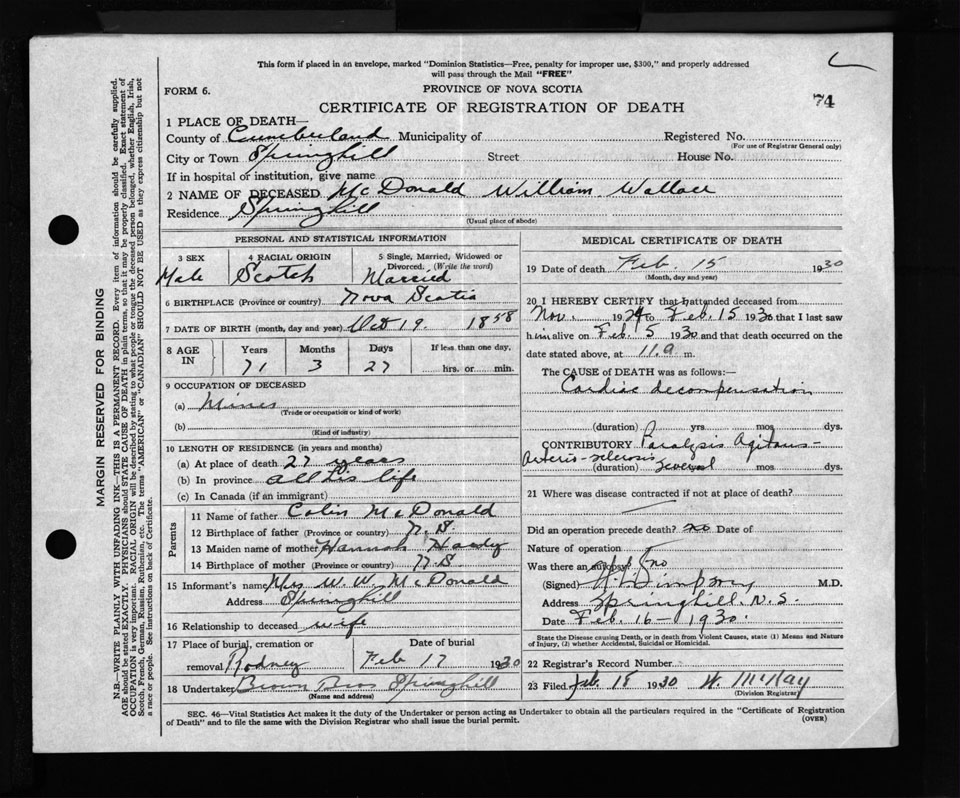 This form if placed in an envelope, marked "Dominion Statistics—Free, penalty for improper use, $300," and properly addressed
will pass through the Mail "FREE"
FORM 6.
PROVINCE OF NOVA SCOTIA
74
CERTIFICATE OF REGISTRATION OF DEATH
1 PLACE OF DEATH—
County of Cumberland Municipality of Registered No.
(For use of Registrar General only)
City or Town Springhill Street House No.
If in hospital or institution, give name
2 NAME OF DECEASED McDonald William Wallace
Residence Springhill
(Usual place of abode)
PERSONAL AND STATISTICAL INFORMATION
3 SEX 4 RACIAL ORIGIN 5 Single, Married, Widowed or
Divorced. (Write the word)
Male Scotch Married
6 BIRTHPLACE (Province or country) Nova Scotia
7 DATE OF BIRTH (month, day and year) Oct 19. 1858
8 AGE IN Years Months Days If less than one day.
71 3 27 hrs. or min.
9 OCCUPATION OF DECEASED
(a) Miner
(Trade or occupation or kind of work)
(b)
(Kind of industry)
10 LENGTH OF RESIDENCE (in years and months)
(a) At place of death 27 years
(b) In province all his life
(c) In Canada (if an immigrant)
Parents
11 Name of father Colin McDonald
12 Birthplace of father (Province or country) N.S.
13 Maiden name of mother Hannah
14 Birthplace of mother (Province or country) N S
15 Informant's name Mrs W. W. McDonald
Address Springhill
16 Relationship to deceased wife
17 Place of burial, cremation or Date of burial
removal Rodney Feb 17 1930
18 Undertaker Brown Bros Springhill
(Name and address)
MEDICAL CERTIFICATE OF DEATH
19 Date of death Feb. 15 1930
(Month, day and year)
20 I HEREBY CERTIFY that I attended deceased from
Nov. 1929 to Feb. 15 1930 that I last saw
him alive on Feb 5 1930 and that death occurred on the
date stated above, at 11 a m.
The CAUSE of DEATH was as follows:—
Cardiac decompensation
(duration) yrs. mos. dys.
CONTRIBUTORY Paralysis Agitans-
Arterio-sclerosis
(duration) several mos. dys.
21 Where was disease contracted if not at place of death?
Did an operation precede death? no Date of
Nature of operation
Was there an autopsy? no
(Signed) M.D.
Address Springhill. N.S.
Date Feb. 16—1930.
State the Disease causing Death, or in death from Violent Causes, state (1) Means and Nature
of Injury, (2) whether Accidental, Suicidal or Homicidal.
22 Registrar's Record Number
23 Filed Feb. 18 1930 W. McKay
(Division Registrar)
SEC. 46—Vital Statistics Act makes it the duty of the Undertaker or person acting as Undertaker to obtain all the particulars required in the "Certificate of Registration
of Death" and to file the same with the Division Registrar who shall issue the burial permit. (OVER)
MARGIN RESERVED FOR BINDING
N.B.—WRITE PLAINLY WITH UNFADING INK—THIS IS A PERMANENT RECORD. Every item of information should be carefully supplied.
AGE should be stated EXACTLY. PHYSICIANS should STATE CAUSE OF DEATH in plain terms, so that it may be properly classified. Exact statement of
OCCUPATION is very important. RACIAL ORIGIN will be described by stating to what people or tongue the deceased person belonged, whether English, Irish,
Scotch, French, German, Russian, Ruthenian, etc. The terms "AMERICAN" or "CANADIAN" SHOULD NOT BE USED as they express citizenship but not
a race or people. See instructions on back of Certificate.